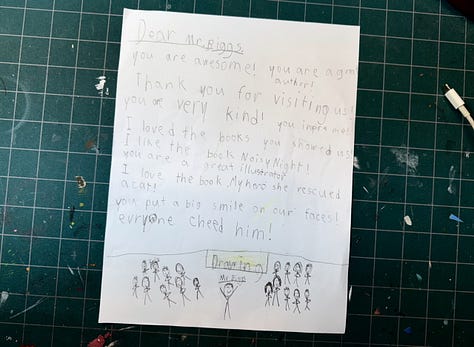 Dear Mr. Biggs,
you are awesome! you are a great
author!
Thank you for visiting us!
you are very kind! you inspire me!
I loved the books you showed us
I like the book Noisy Night!
you are a great illustrator
I love the book My hero she rescued
a cat!
you put a big smile on our faces!
evryone cheed him!
Drawing
Mr.